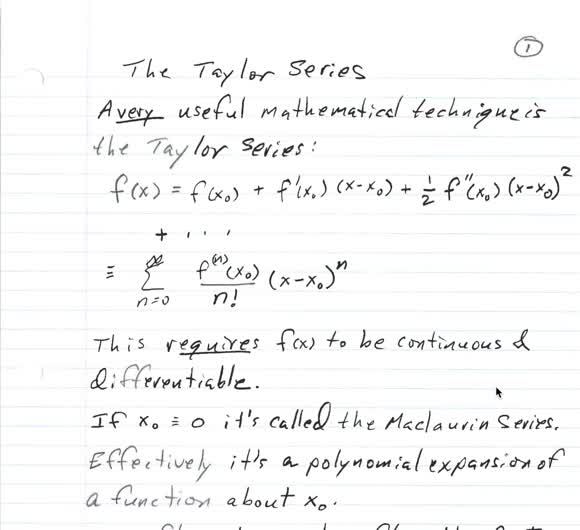 ①
The Taylor Series
A very useful mathematical technique is
the Taylor Series:
f(x) = f(x₀) + f'(x₀) (x-x₀) + ½ f''(x₀) (x-x₀)²
+ ...
≡ ∑ₙ₌₀^∞ f⁽ⁿ⁾(x₀)/n! (x-x₀)ⁿ
This requires f(x) to be continuous &
differentiable.
If x₀ ≡ 0 it's called the Maclaurin Series.
Effectively it's a polynomial expansion of
a function about x₀.